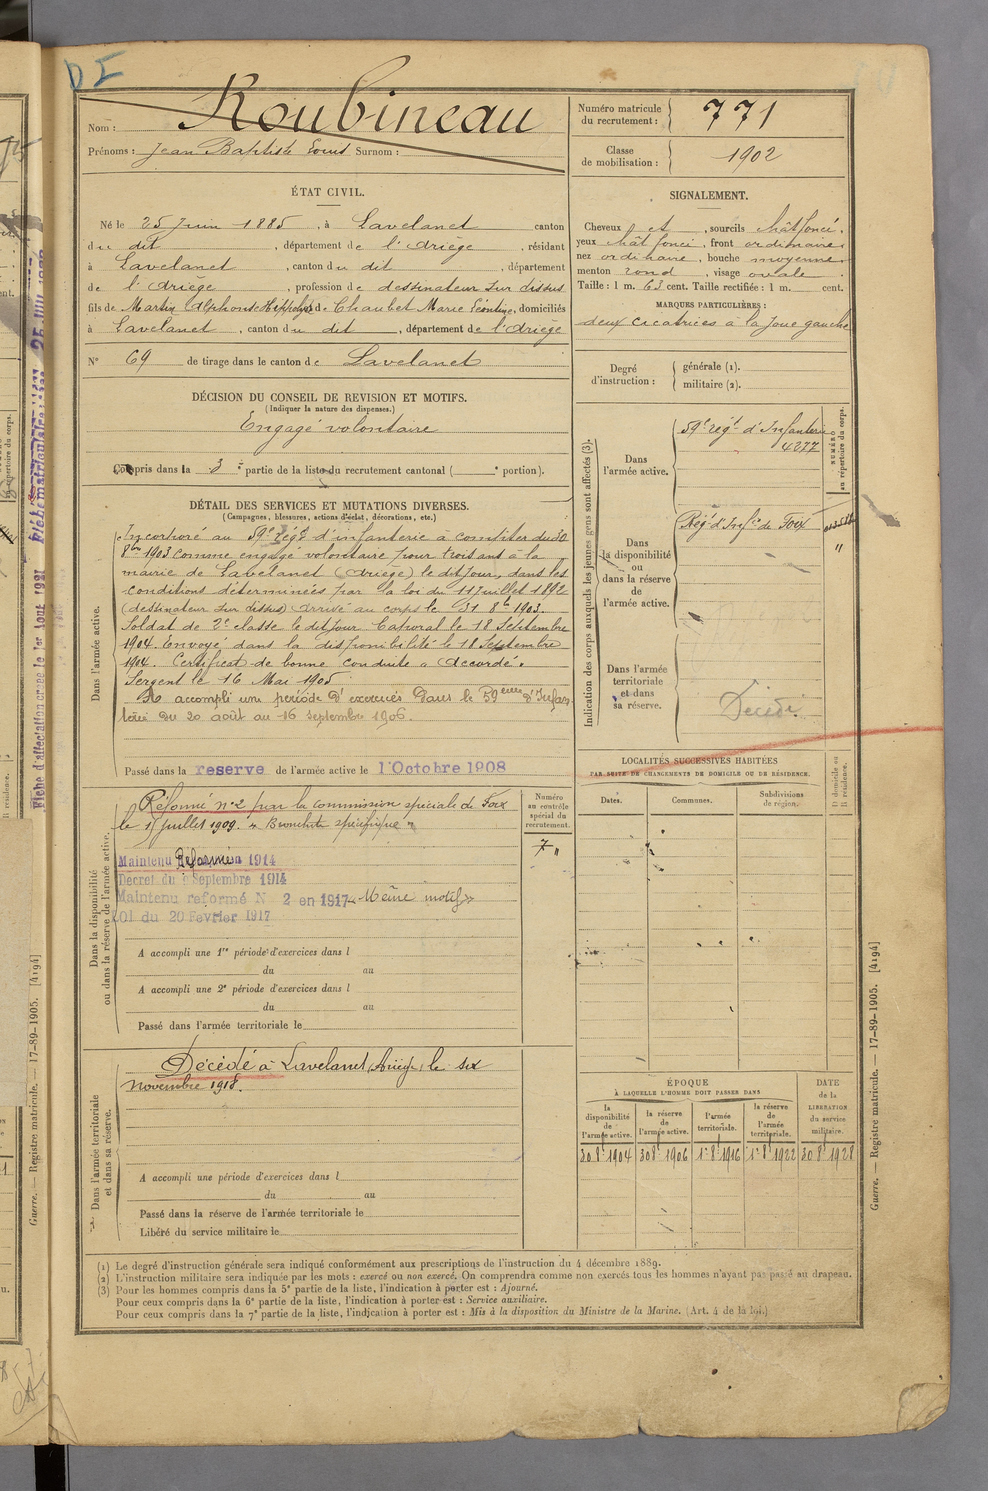 DI
Nom : Roubineau
Prénoms : Jean Baptiste Louis Surnom :
Numéro matricule du recrutement : 771
Classe de mobilisation : 1902
ÉTAT CIVIL.
Né le 25 Juin 1885, à Lavelanet canton
du dit, département de l'Ariège, résidant
à Lavelanet, canton du dit, département
de l'Ariège, profession de dessinateur sur tissus
fils de Martin Alphonse Hippolyte et de Chaubet Marie Léontine, domiciliés
à Lavelanet, canton du dit, département de l'Ariège
N° 69 de tirage dans le canton de Lavelanet
SIGNALEMENT.
Cheveux et, sourcils chât foncé,
yeux chât foncé, front ordinaire
nez ordinaire, bouche moyenne
menton rond, visage ovale
Taille : 1 m. 63 cent. Taille rectifiée : 1 m. cent.
MARQUES PARTICULIÈRES :
deux cicatrices à la joue gauche
Degré d'instruction : générale (1).
militaire (2).
DÉCISION DU CONSEIL DE REVISION ET MOTIFS.
(Indiquer la nature des dispenses.)
Engagé volontaire
Compris dans la 3e partie de la liste du recrutement cantonal ( e portion).
DÉTAIL DES SERVICES ET MUTATIONS DIVERSES.
(Campagnes, blessures, actions d'éclat, décorations, etc.)
Dans l'armée active.
Incorporé au 59e régt d'infanterie à compter du 30
8bre 1903 comme engagé volontaire pour trois ans à la
mairie de Lavelanet (Ariège) le dit jour, dans les
conditions déterminées par la loi du 11 juillet 1892
(dessinateur sur tissus) arrivé au corps le 31 8bre 1903.
Soldat de 2e classe le dit jour Caporal le 18 Septembre
1904. Envoyé dans la disponibilité le 18 Septembre
1904. Certificat de bonne conduite "Accordé".
Sergent le 16 Mai 1905
A accompli une période d'exercices dans le 59ème d'Infan-
terie du 20 août au 16 septembre 1906.
Passé dans la reserve de l'armée active le 1'Octobre 1908
Indication des corps auxquels les jeunes gens sont affectés (3).
NUMÉRO au répertoire du corps.
Dans l'armée active.
59e régt d'Infanterie
4277
Dans la disponibilité ou dans la réserve de l'armée active.
Régt d'Infie de Foix
"
Dans l'armée territoriale et dans sa réserve.
Décédé
Dans la disponibilité ou dans la réserve de l'armée active.
Réformé n°2 par la commission spéciale de Foix
le 15 juillet 1909. « Bronchite spécifique »
Maintenu Réformé en 1914
Décret du 9 Septembre 1914
Maintenu reformé N 2 en 1917 « Même motif »
LOI du 20 Fevrier 1917
Numéro au contrôle spécial du recrutement.
7 "
A accompli une 1re période d'exercices dans l
du au
A accompli une 2e période d'exercices dans l
du au
Passé dans l'armée territoriale le
Dans l'armée territoriale et dans sa réserve.
Décédé à Lavelanet (Ariège) le six
novembre 1918.
A accompli une période d'exercices dans l
du au
Passé dans la réserve de l'armée territoriale le
Libéré du service militaire le
LOCALITÉS SUCCESSIVES HABITÉES
PAR SUITE DE CHANGEMENTS DE DOMICILE OU DE RÉSIDENCE.
Dates. Communes. Subdivisions de région. D domicile ou R résidence.
ÉPOQUE
À LAQUELLE L'HOMME DOIT PASSER DANS
la disponibilité de l'armée active. la réserve de l'armée active. l'armée territoriale. la réserve de l'armée territoriale. DATE de la LIBÉRATION du service militaire.
30 8bre 1904 30 8bre 1906 1er 8bre 1916 1er 8bre 1922 30 8bre 1928
(1) Le degré d'instruction générale sera indiqué conformément aux prescriptions de l'instruction du 4 décembre 1889.
(2) L'instruction militaire sera indiquée par les mots : exercé ou non exercé. On comprendra comme non exercés tous les hommes n'ayant pas passé au drapeau.
(3) Pour les hommes compris dans la 5e partie de la liste, l'indication à porter est : Ajourné.
Pour ceux compris dans la 6e partie de la liste, l'indication à porter est : Service auxiliaire.
Pour ceux compris dans la 7e partie de la liste, l'indication à porter est : Mis à la disposition du Ministre de la Marine. (Art. 4 de la loi.)
Guerre. — Registre matricule. — 17-89-1905. [4194]
Guerre. — Registre matricule. — 17-89-1905. [4194]
Fiche d'affectation créée le 1er Aout 1921